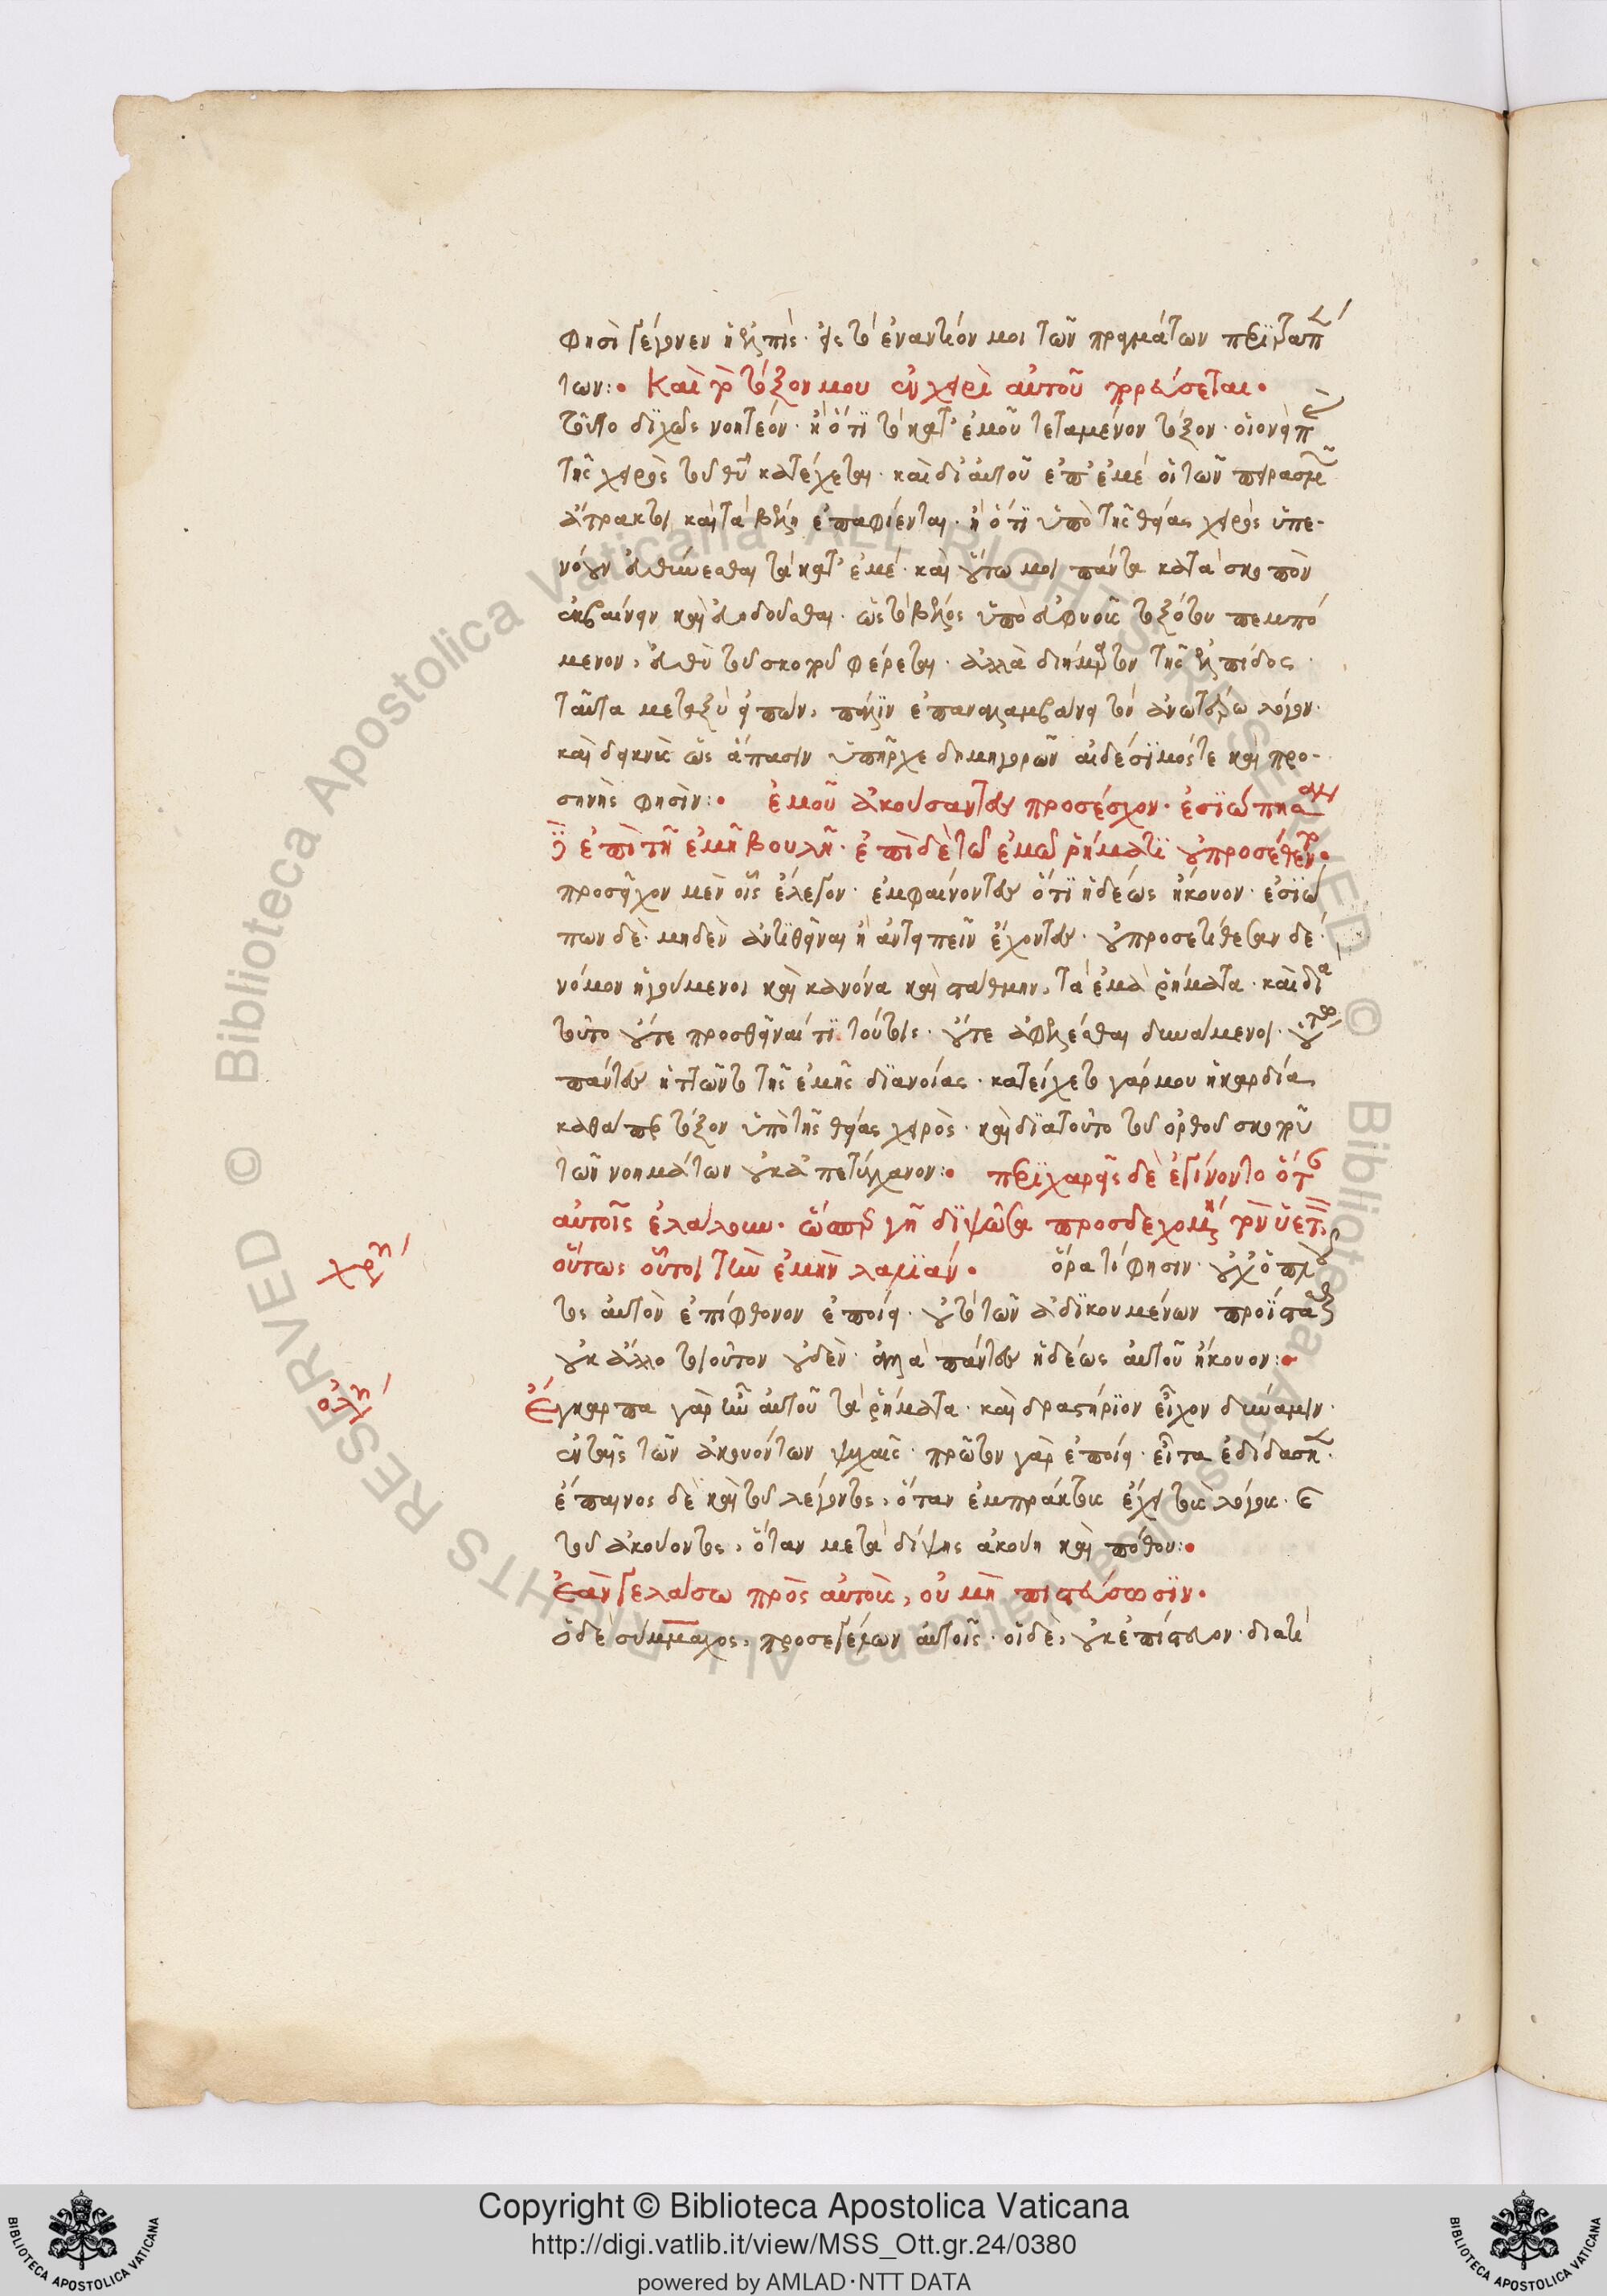 φησὶ γέγονεν ἡ ἐλπίς· εἰς τὸ ἐναντίον μοι τῶν πραγμάτων περιϊσταμέν
των:· Καὶ τὸ τόξον μου ἐν χειρὶ αὐτοῦ πορεύσεται·
τοῦτο διχῶς νοητέον· ἢ ὅτι τὸ κατ' ἐμοῦ τεταμένον τόξον· οἱονεὶ
τῆς χειρὸς τοῦ θυ κατέχεται· καὶ δι' αὐτοῦ ἐπ' ἐμὲ οἱ τῶν πειρασμῶν
ἄτρακτοι καὶ τὰ βέλη ἐπαφίενται· ἢ ὅτι ὑπὸ τῆς θείας χειρὸς ὑπε-
νόουν εὐθύνεσθαι τὰ κατ' ἐμέ· καὶ οὕτω μοι πάντα κατὰ σκοπὸν
ἐκβαίνειν καὶ εὐοδοῦσθαι· ὡς τὸ βέλος ὑπὸ εὐφυοῦς τοξότου πεμπό
μενον, εὐθὺ τοῦ σκοποῦ φέρεται· ἀλλὰ διήμαρτον τῆς ἐλπίδος·
ταῦτα μεταξὺ εἰπὼν, πάλιν ἐπαναλαμβάνει τὸν ἀνωτέρω λόγον·
καὶ δεικνὺς ὡς ἅπασιν ὑπῆρχε δημηγορῶν αἰδέσιμός τε καὶ προ-
σηνὴς φησίν:· ἐμοῦ ἀκούσαντες προσέσχον· ἐσιώπησαν
δὲ ἐπὶ τῇ ἐμῇ βουλῇ· ἐπὶ δὲ τῷ ἐμῷ ῥήματι οὐ προσέθεντο·
προσεῖχον μὲν οἷς ἔλεγον· ἐμφαίνοντες ὅτι ἡδέως ἤκουον· ἐσιώ
πων δὲ· μηδὲν ἀντιθεῖναι ἢ ἀντειπεῖν ἔχοντες· οὐ προσετίθεσαν δὲ·
νόμον ἡγούμενοι καὶ κανόνα καὶ στάθμην, τὰ ἐμὰ ῥήματα· καὶ διὰ
τοῦτο οὔτε προσθεῖναί τι τούτοις· οὔτε ἀφελέσθαι δυνάμενοι· οὐ γὰρ
πάντες ἡττῶντο τῆς ἐμῆς διανοίας· κατείχετο γάρ μου ἡ καρδία
καθάπερ τόξον ὑπὸ τῆς θείας χειρὸς· καὶ διατοῦτο τοῦ ὀρθοῦ σκοποῦ
τῶν νοημάτων οὐκ ἀπετύγχανον:· περιχαρεῖς δὲ ἐγίνοντο ὅτε
αὐτοῖς ἐλάλουν· ὥσπερ γῆ διψῶσα προσδεχομένη τὸν ὑετὸν,
χρυ
οὕτως οὗτοι τὴν ἐμὴν λαλιάν· ὅρα τί φησιν· οὐχ ὁ πλοῦ
τος αὐτὸν ἐπίφθονον ἐποίει· οὐ τὸ τῶν ἀδικουμένων προΐστασθαι
οὐκ ἄλλο τοιοῦτον οὐδέν· ἀλλὰ πάντες ἡδέως αὐτοῦ ἤκουον:·
ολυ
Ἔγκαρπα γὰρ ἦν αὐτοῦ τὰ ῥήματα· καὶ δραστήριον εἶχον δύναμιν·
ἐν ταῖς τῶν ἀκουόντων ψυχαῖς· πρῶτον γὰρ ἐποίει· εἶτα ἐδίδασκεν·
ἔπαινος δὲ καὶ τοῦ λέγοντος, ὅταν ἐμπράκτους ἔχῃ τοὺς λόγους· καὶ
τοῦ ἀκούοντος, ὅταν μετὰ δίψης ἀκούῃ καὶ πόθου:·
Ἐὰν γελάσω πρὸς αὐτοὺς, οὐ μὴ πιστεύσωσιν·
ὁ δὲ σύμμαχος, προσεγέλων αὐτοῖς· οἱ δὲ, οὐκ ἐπίστευον· διατὶ